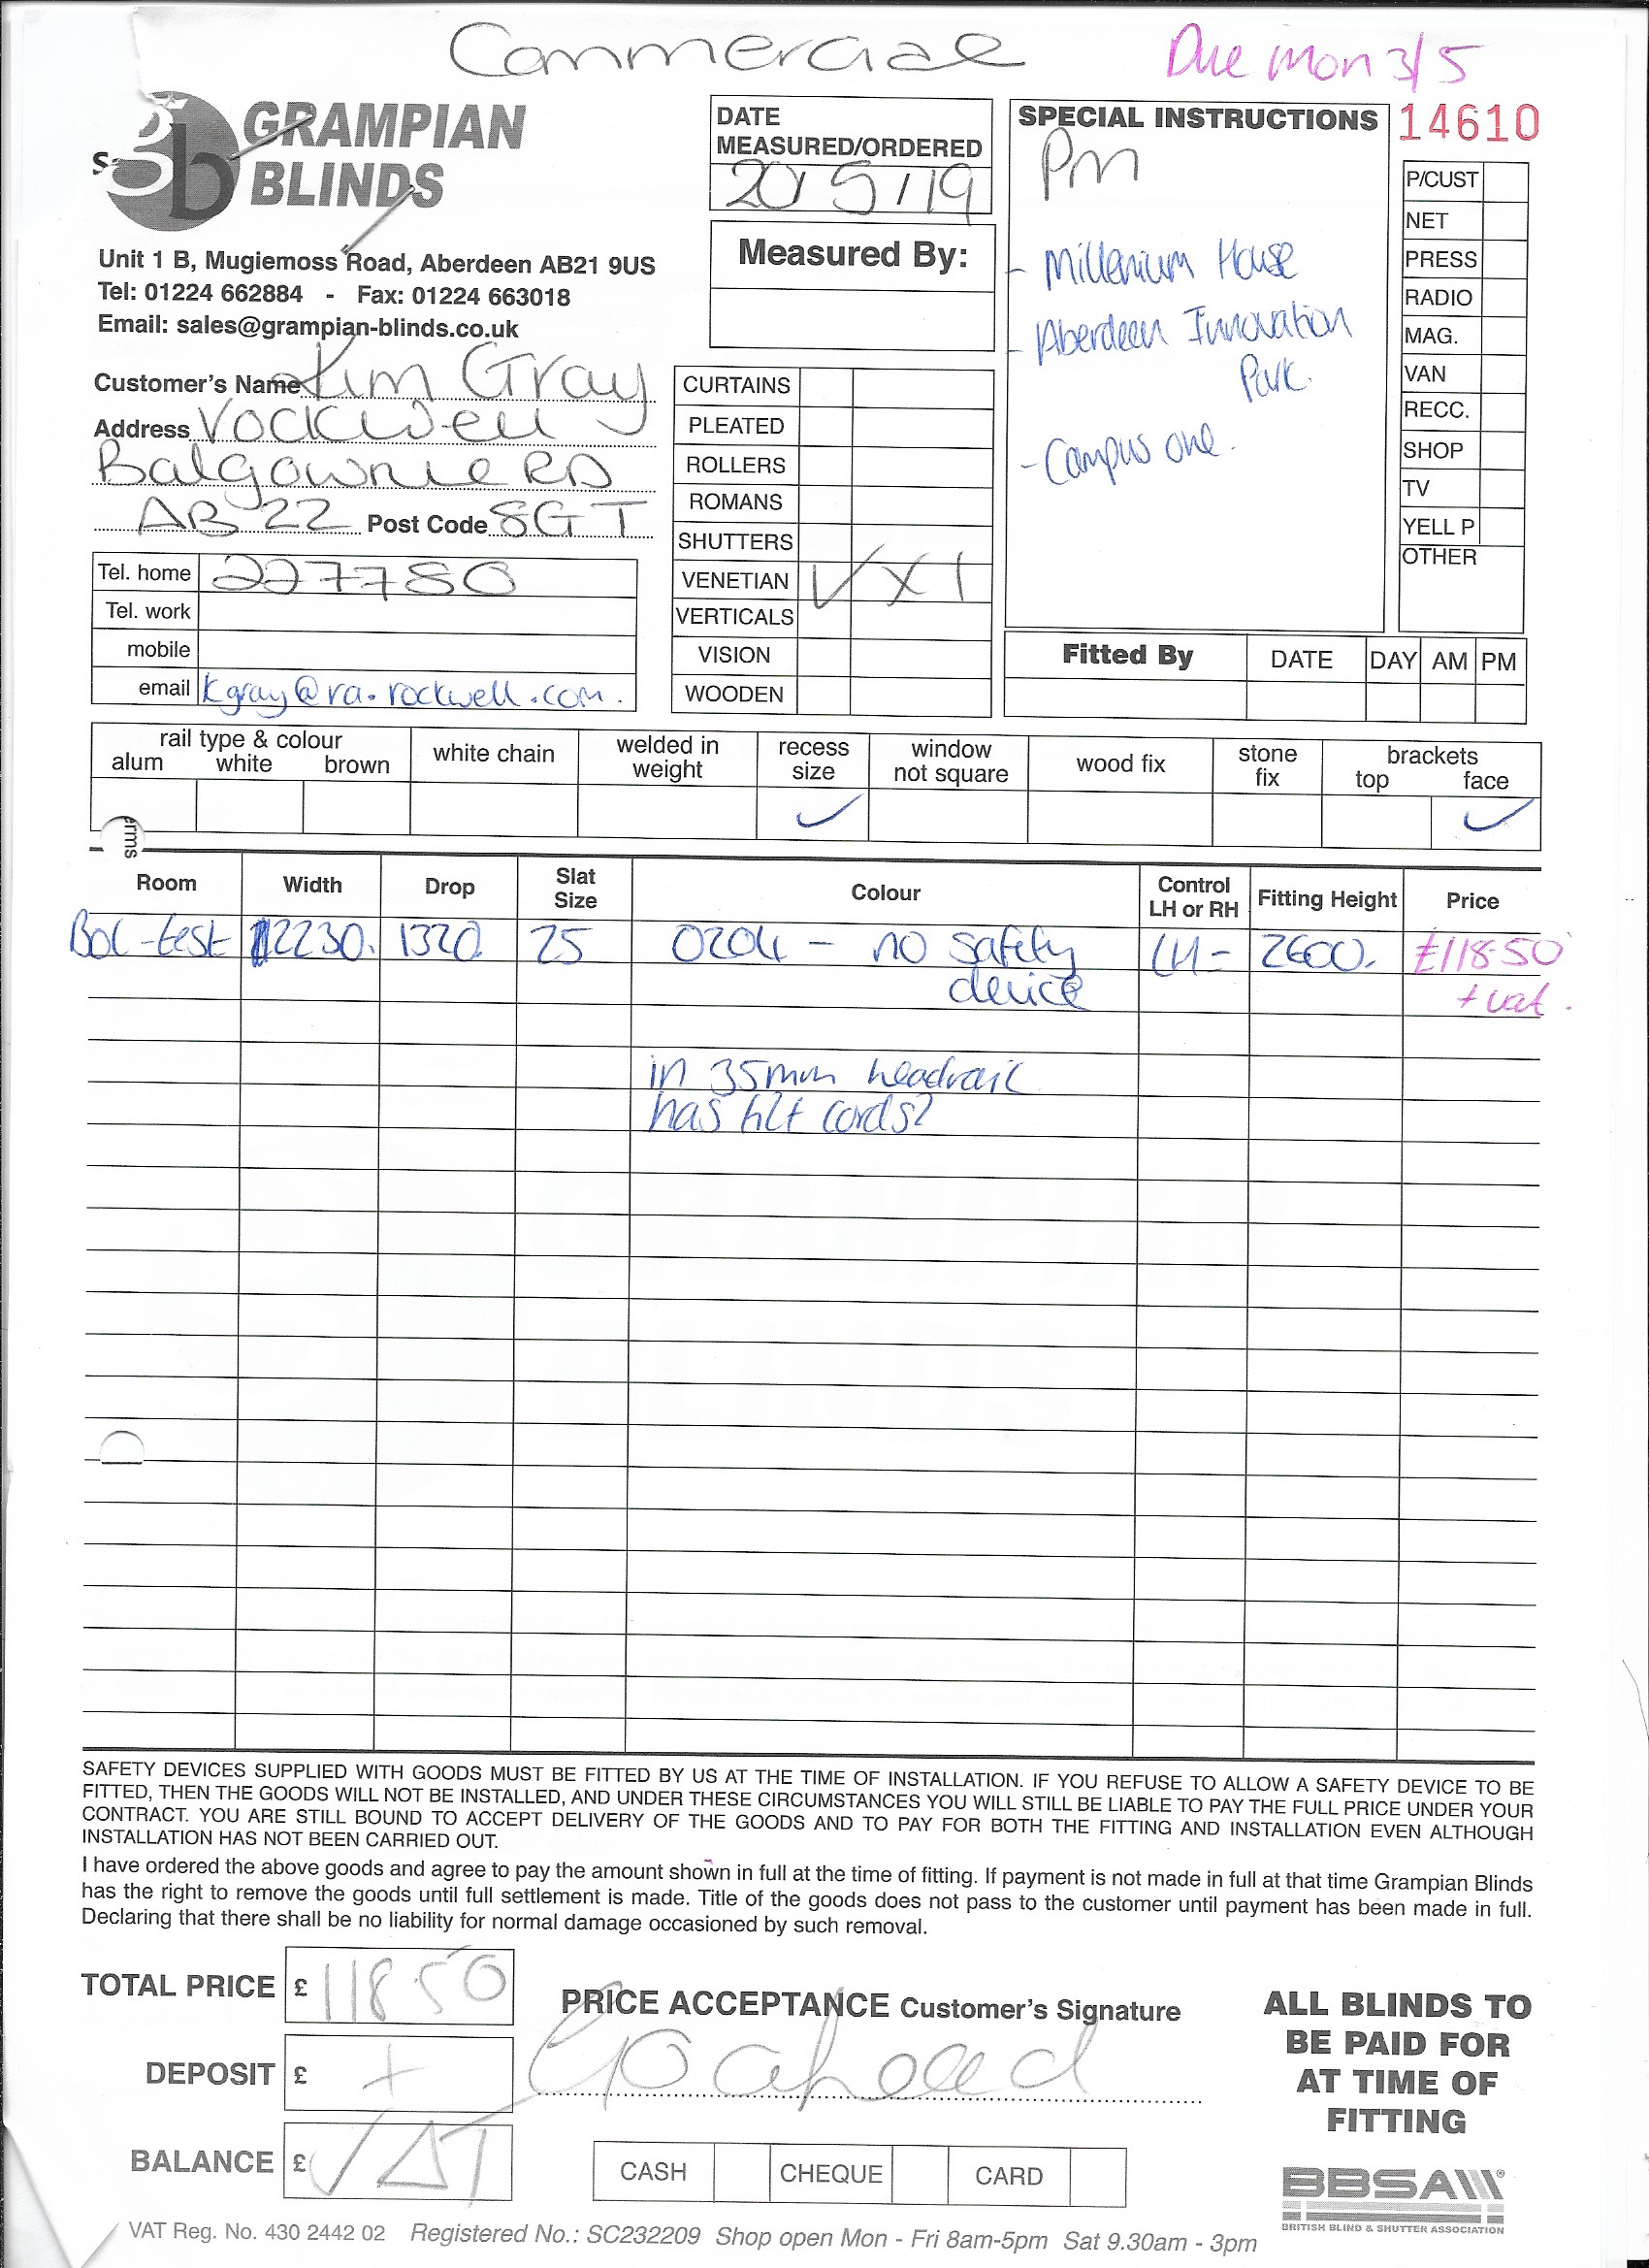 Commercial
Due Mon 3/5
GRAMPIAN
BLINDS
Unit 1 B, Mugiemoss Road, Aberdeen AB21 9US
Tel: 01224 662884 - Fax: 01224 663018
Email: sales@grampian-blinds.co.uk
Customer's Name Kim Gray
Address Rockwell
Balgownie RD
AB 22 Post Code 8GT
Tel. home 227780
Tel. work
mobile
email kgray@ra.rockwell.com.
DATE
MEASURED/ORDERED
20/5/19
Measured By:
CURTAINS
PLEATED
ROLLERS
ROMANS
SHUTTERS
VENETIAN ✓ x 1
VERTICALS
VISION
WOODEN
SPECIAL INSTRUCTIONS
Pm
- Millenium House
- Aberdeen Innovation
Park.
- Campus one.
14610
P/CUST
NET
PRESS
RADIO
MAG.
VAN
RECC.
SHOP
TV
YELL P
OTHER
Fitted By DATE DAY AM PM
rail type & colour
alum white brown
white chain
welded in
weight
recess
size
✓
window
not square
wood fix
stone
fix
brackets
top face
✓
erms
Room Width Drop Slat Size Colour Control LH or RH Fitting Height Price
Bol-test 2230. 1320. 25 0204 - no safety LH- 2600. £118.50
device + vat.
in 35mm headrail
has tilt cords?
SAFETY DEVICES SUPPLIED WITH GOODS MUST BE FITTED BY US AT THE TIME OF INSTALLATION. IF YOU REFUSE TO ALLOW A SAFETY DEVICE TO BE
FITTED, THEN THE GOODS WILL NOT BE INSTALLED, AND UNDER THESE CIRCUMSTANCES YOU WILL STILL BE LIABLE TO PAY THE FULL PRICE UNDER YOUR
CONTRACT. YOU ARE STILL BOUND TO ACCEPT DELIVERY OF THE GOODS AND TO PAY FOR BOTH THE FITTING AND INSTALLATION EVEN ALTHOUGH
INSTALLATION HAS NOT BEEN CARRIED OUT.
I have ordered the above goods and agree to pay the amount shown in full at the time of fitting. If payment is not made in full at that time Grampian Blinds
has the right to remove the goods until full settlement is made. Title of the goods does not pass to the customer until payment has been made in full.
Declaring that there shall be no liability for normal damage occasioned by such removal.
TOTAL PRICE £ 118 50
DEPOSIT £ +
BALANCE £ VAT
PRICE ACCEPTANCE Customer's Signature
Go ahead
CASH CHEQUE CARD
ALL BLINDS TO
BE PAID FOR
AT TIME OF
FITTING
BBSA
BRITISH BLIND & SHUTTER ASSOCIATION
VAT Reg. No. 430 2442 02 Registered No.: SC232209 Shop open Mon - Fri 8am-5pm Sat 9.30am - 3pm